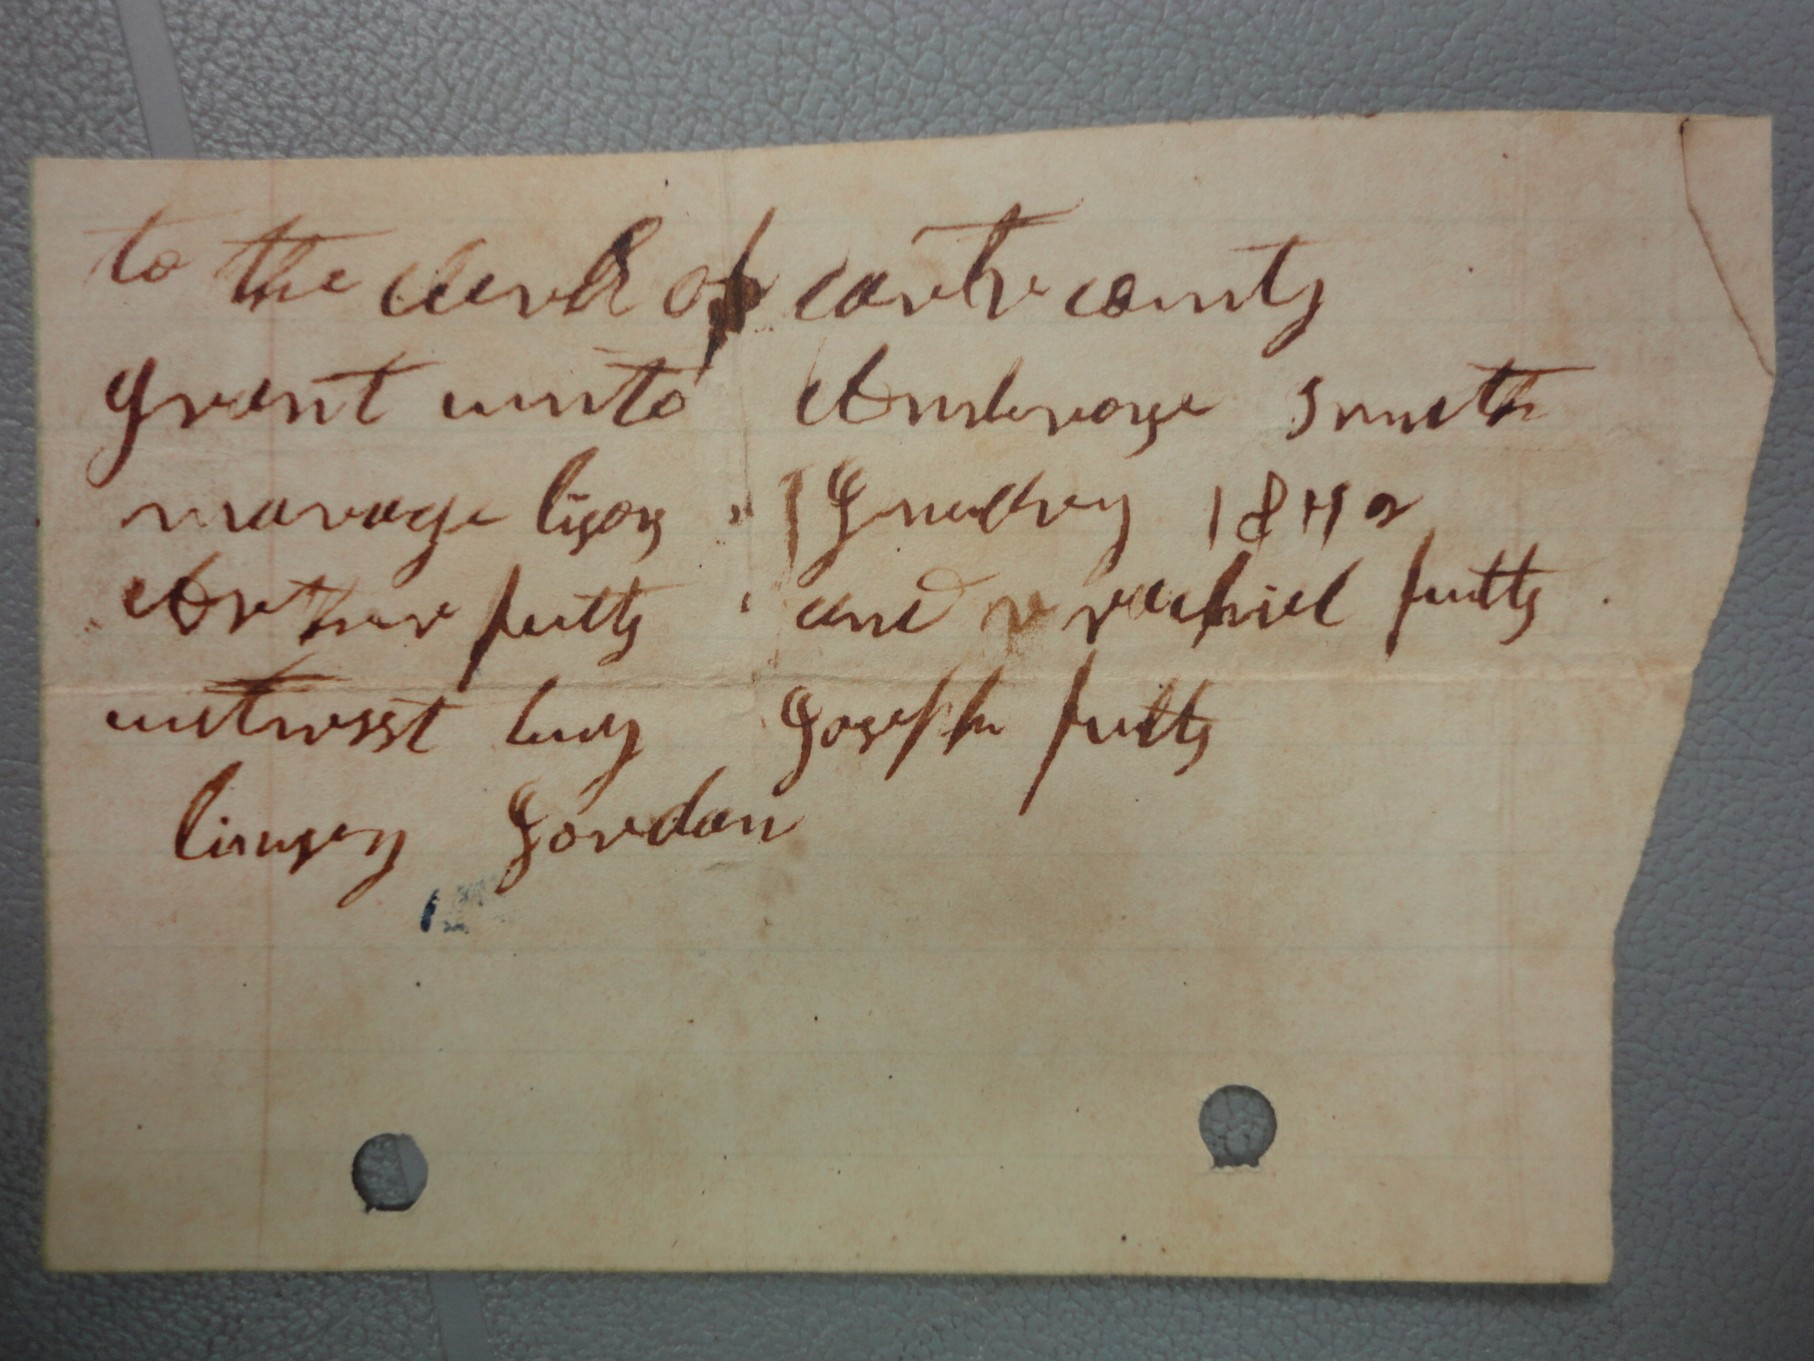 to the clerk of cartre county
grant unto Anderange Smith
marage lisons 1 Genuarey 1842
Arthur futts and rachiel futts
witnesst buy Joseph futts
linsey Jordan